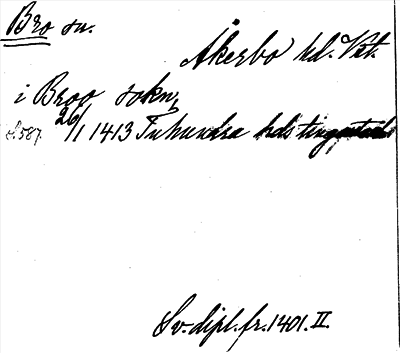 Bro sn.
Åkerbo hd. Vstm.
i Broo sokn
s. 587 26/1 1413 Tuhundra hds tingsstad
Sv. dipl. fr. 1401. II.